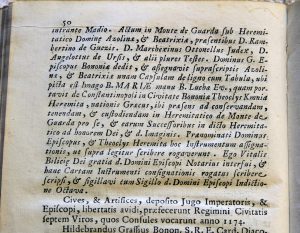 50
intrante Madio. Actum in Monte de Guarda sub Heremi-
tatico Domine Azoline, & Beatrixia, præsentibus D. Ram-
bertino de Guezit. D. Marchexinus Ottonellus Iudex, D.
Angelottus de Ursis, & alii plures Testes. Dominus G. E-
piscopus Bononiæ dedit, & assignavit suprascriptis Azoli-
næ, & Beatrixiæ unam Capsulam de ligno cum Tabula, ubi
picta est Imago B. MARIÆ manu B. Luchæ Ev., quam por-
tavit de Constantinopoli in Civitate Bononiæ Theoclys Kmnia
Heremita, nationis Græcus, ibi præsens ad conservandam,
tenendam, & custodiendam in Heremitatico de Monte de
Guarda per se, & earum Successoribus in dicto Heremita-
tico ad honorem Dei, & d. Imaginis. Prænominati Dominus
Episcopus, & Theoclys Heremita hoc Instrumentum assigna-
tionis, ut supra legitur scribere rogaverunt. Ego Vitalis
Bilicis Dei gratia d. Domini Episcopi Notarius interfui, &
hanc Cartam Instrumenti consignationis rogatus scribere
scripsi, & sigillavi cum Sigillo d. Domini Episcopi Indictio-
ne Octava.
Cives, & Artifices, deposito Jugo Imperatoris, &
Episcopi, libertatis avidi, præfecerunt Regimini Civitatis
septem Viros, quos Consules vocarunt anno 1174.
Hildebrandus Grassus Bonon. S. R. E. Diaco-